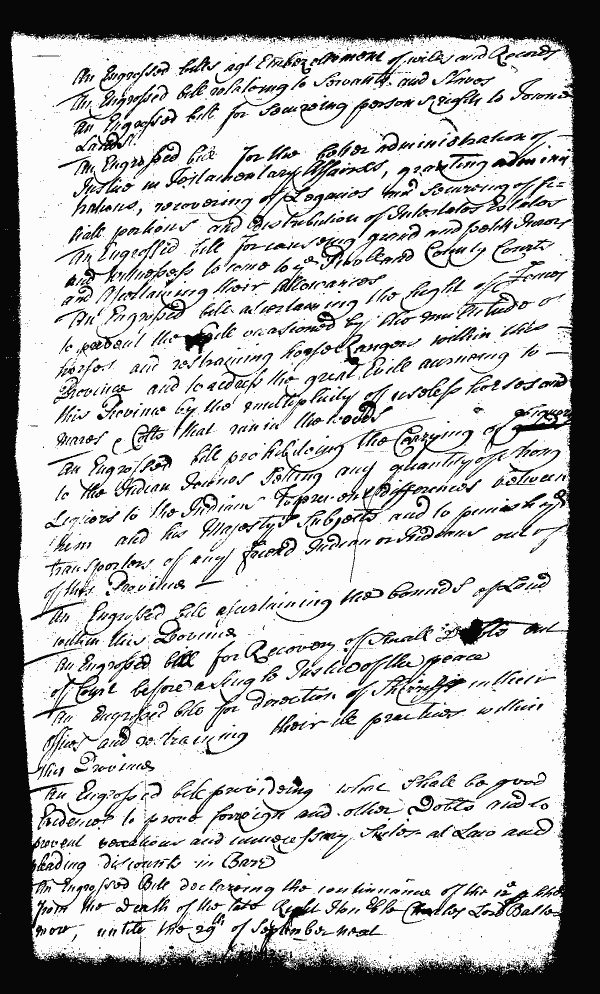 An Engrossed bill agt Embezelment of wills and Records
An Engrossed bill relateing to Servants and Slaves
An Engrossed bill for Secureing persons rights to Town
Lands
An Engrossed bill for the better administration of
Justice in Testamentary Affaires, granting admini
trations, recovering of Legacies and Secureing of fi-
liall portions and distribution of Intestates Estates
An Engrossed bill for causeing grand and petit Jurors
and witnesses to come to ye Provll and County Courts
and Ascertaining their Allowances
An Engrossed bill ascertaining the hight of Fences
to prevent the Evill occasioned by the multitude of
horses and restraining horse Rangers within this
Province and to redress the great Evill accrueing to
this Province by the multiplicity of useless horses and
mares & Colts that run in the woods
An Engrossed bill prohibiteing the Carrying of Liquors
to the Indian Townes Selling any quantity of strong
Liquors to the Indians To prevent differences between
them and his Majestys Subjects and to punish ye
transporters of any friend Indian or Indians out of
of this Province
An Engrossed bill ascertaining the bounds of Land
within this Province
An Engrossed bill for Recovery of Small Debts out
of Court before a Single Justice of the peace
An Engrossed bill for direction of Sheriffs in their
Offices and restraining their ill practices within
this Province
An Engrossed bill provideing what Shall be good
Evidence to prove forreign and other Debts and to
prevent vexatious and unnecessary Suites at Law and
pleading discounts in Barr
An Engrossed Bill declareing the continuance of the
from the Death of the late Right Honble Charles Lord Balte
more, untill the 29th of September next